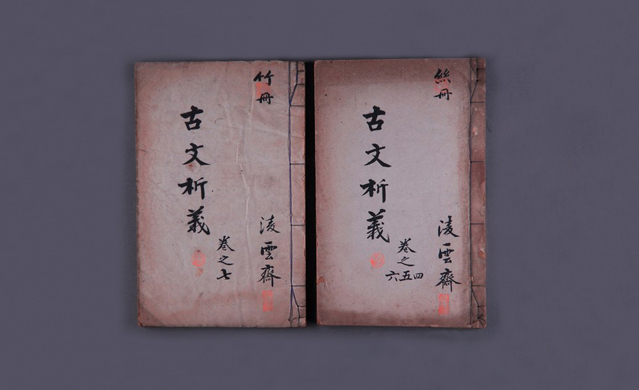 絲冊
古文析義
卷之四五六
凌雲齋
竹冊
古文析義
卷之七
凌雲齋